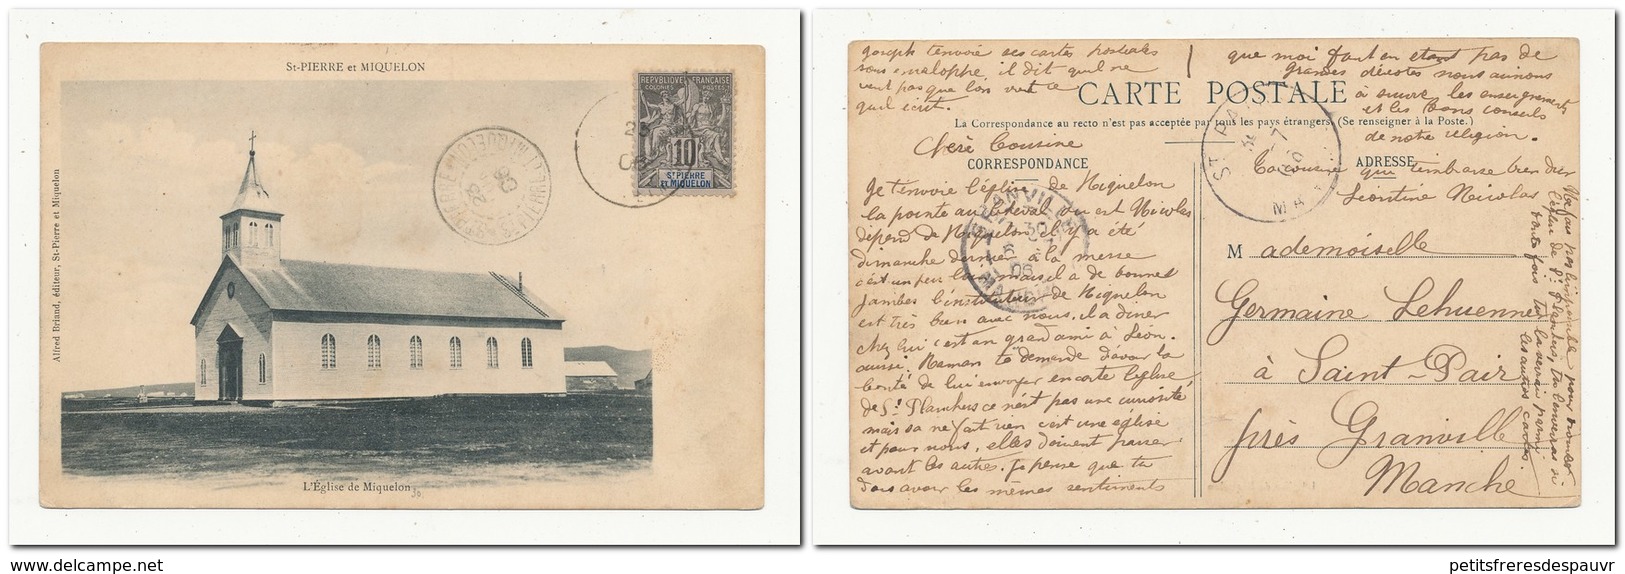 St-PIERRE et MIQUELON
Alfred Briand, éditeur, St-Pierre et Miquelon
REPVBLIQVE FRANÇAISE
COLONIES POSTES
10
St PIERRE
ET MIQUELON
L'Église de Miquelon
joseph t'envoie ses cartes postales
sous envaloppe, il dit qu'il ne
veut pas que l'on voit ce
qu'il écrit.
que moi faut en etant pas de
grandes dévotes nous aimons
à suivre les enseignements
et les bons conseils
de notre religion.
CARTE POSTALE
La Correspondance au recto n'est pas acceptée par tous les pays étrangers. (Se renseigner à la Poste.)
Chère Cousine
CORRESPONDANCE
ADRESSE
Ta cousine qui t'embrasse bien dur
Léontine Nicolas
Je t'envoie l'église de Miquelon
la pointe au Cheval ou est Nicolas
dépend de Miquelon il y a été
dimanche dernier à la messe
c'est un peu loin mais il a de bonnes
jambes l'instituteur de Miquelon
est très bien avec nous, il a diner
chez lui c'est un grand ami à Léon
aussi. Maman te demande d'avoir la
bonté de lui envoyer en carte l'église
de St Planchers ce n'est pas une curiosité
mais sa ne fait rien c'est une église
et pour nous, elles doivent passer
avant les autres. Je pense que tu
dois avoir les mêmes sentiments
Mademoiselle
Germaine Lehuenne
à Saint-Pair
près Granville
Manche
petitsfreresdespauvr
delcampe.net